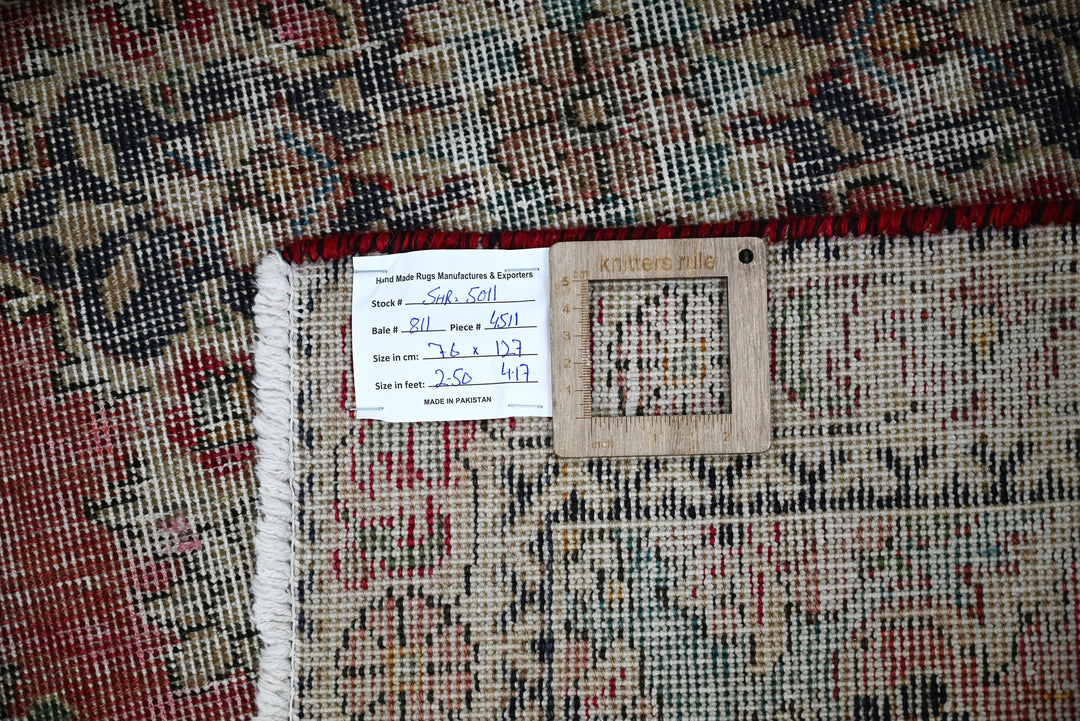 Hand Made Rugs Manufactures & Exporters
Stock # SHR. 5011
Bale # 811 Piece # 4511
Size in cm: 76 x 127
Size in feet: 2.50 4.17
MADE IN PAKISTAN
knitters rule
5 cm
4
3
2
1
1 2